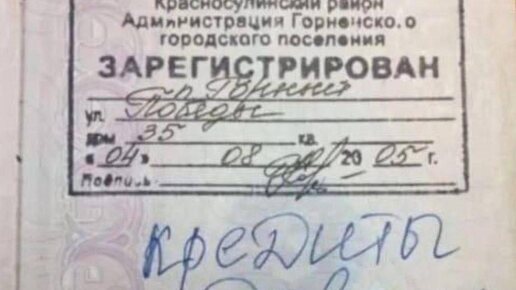 Красносулинский район
Администрация Горненского
городского поселения
ЗАРЕГИСТРИРОВАН
п. Горный
ул. Победы
дом 35 кв.
« 04 » 08 20 05 г.
Подпись
кредиты